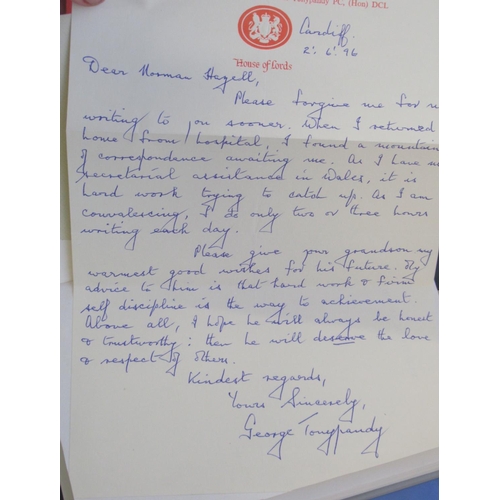 Tonypandy PC, (Hon) DCL
Cardiff.
2. 6. 96
House of Lords
Dear Norman Hazell,
Please forgive me for n
writing to you sooner. When I returned
home from hospital, I found a mountain
of correspondence awaiting me. As I have n
secretarial assistance in Wales, it is
hard work trying to catch up. As I am
convalescing, I do only two or three hours
writing each day.
Please give your grandson my
warmest good wishes for his future. My
advice to him is that hard work & firm
self discipline is the way to achievement.
Above all, I hope he will always be honest
& trustworthy; then he will deserve the love
& respect of others.
Kindest regards,
Yours Sincerely,
George Tonypandy